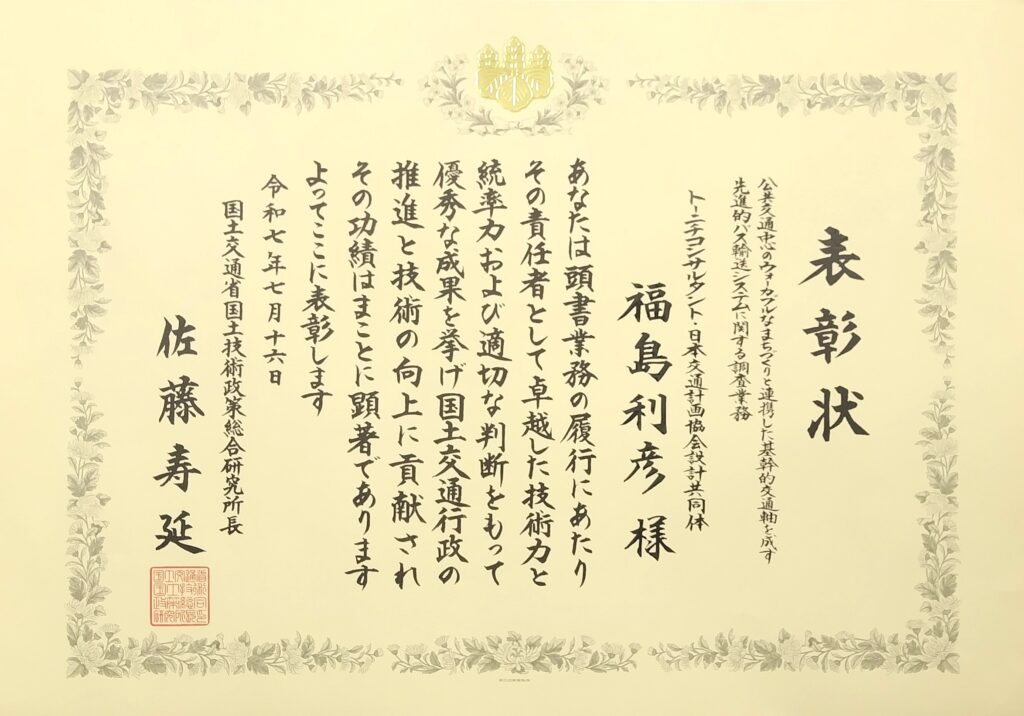 表彰状
公共交通中心のウォーカブルなまちづくりと連携した基幹的交通軸を成す
先進的バス輸送システムに関する調査業務
トーニチコンサルタント・日本交通計画協会設計共同体
福島利彦 様
あなたは頭書業務の履行にあたり
その責任者として卓越した技術力と
統率力および適切な判断をもって
優秀な成果を挙げ国土交通行政の
推進と技術の向上に貢献され
その功績はまことに顕著であります
よってここに表彰します
令和七年七月十六日
国土交通省国土技術政策総合研究所長
佐藤寿延